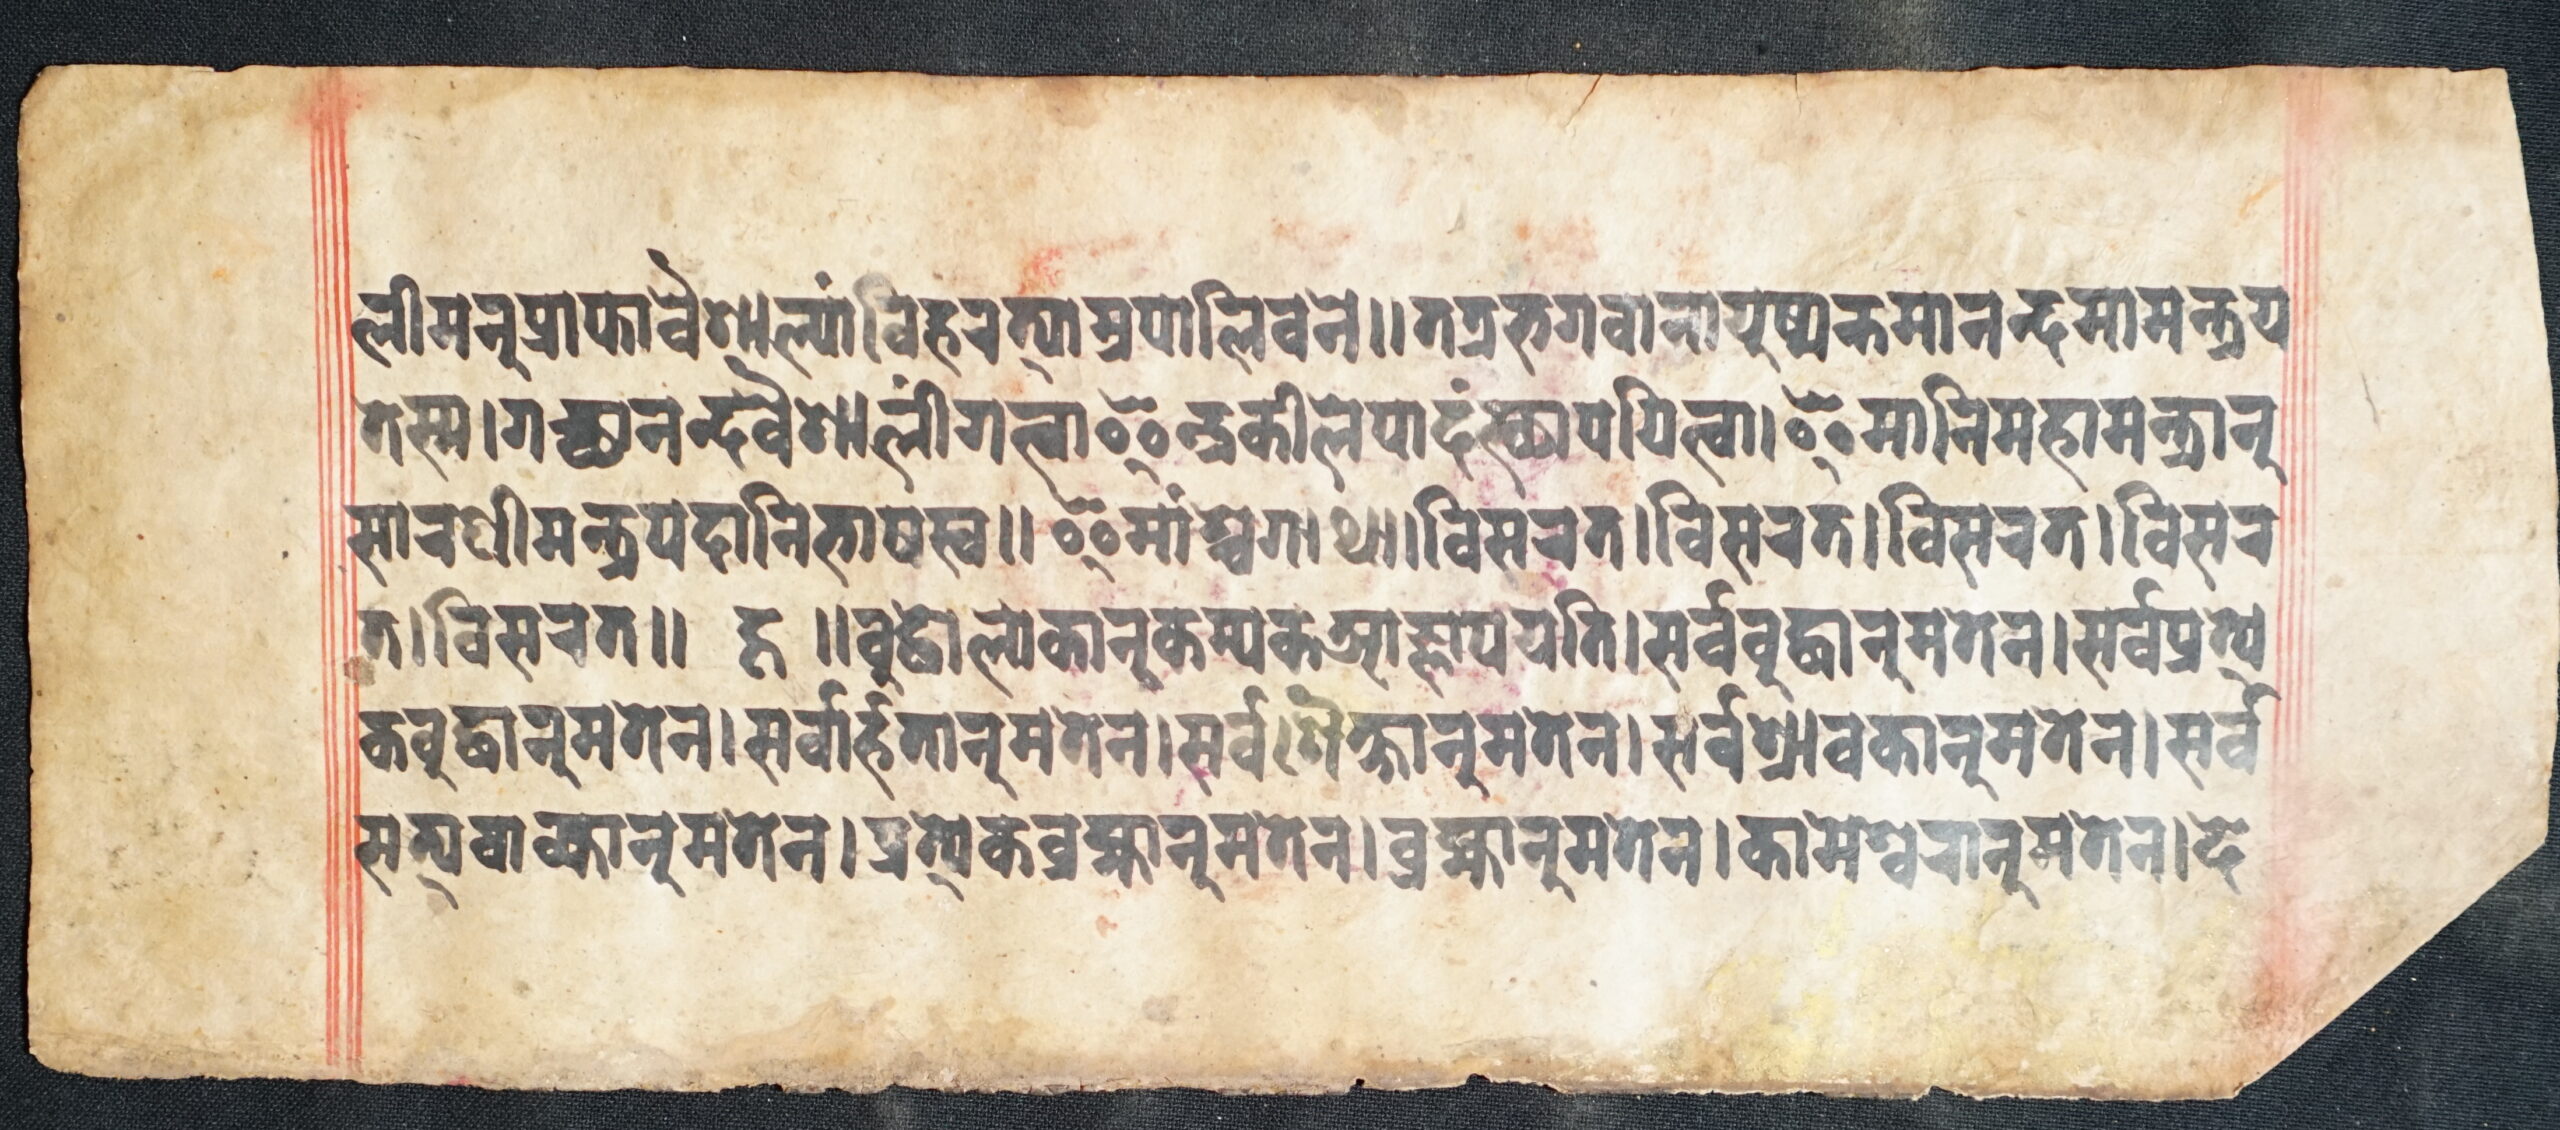 लीमनुप्राप्तावैशाल्यांविहरत्याम्रपालिवने॥तत्रभगवानायुष्मन्तमानन्दमामन्त्रय
तेस्म।गच्छानन्दवैशालींगत्वाइन्द्रकीलेपादंस्थापयित्वा।इमानिमहामन्त्रानु
सारणीमन्त्रपदानिभाषस्व॥इमांश्चगाथा।विसरत।विसरत।विसरत।विसर
त।विसरत॥ ॥बुद्धोल्यकानुकम्पकआज्ञापयति।सर्वबुद्धानुमतेन।सर्वप्रत्ये
कबुद्धानुमतेन।सर्वार्हतानुमतेन।सर्वशैक्षानुमतेन।सर्वश्रावकानुमतेन।सर्व
सत्यवाक्यानुमतेन।प्रत्येकब्रह्मानुमतेन।ब्रह्मानुमतेन।कामेश्वरानुमतेन।दे